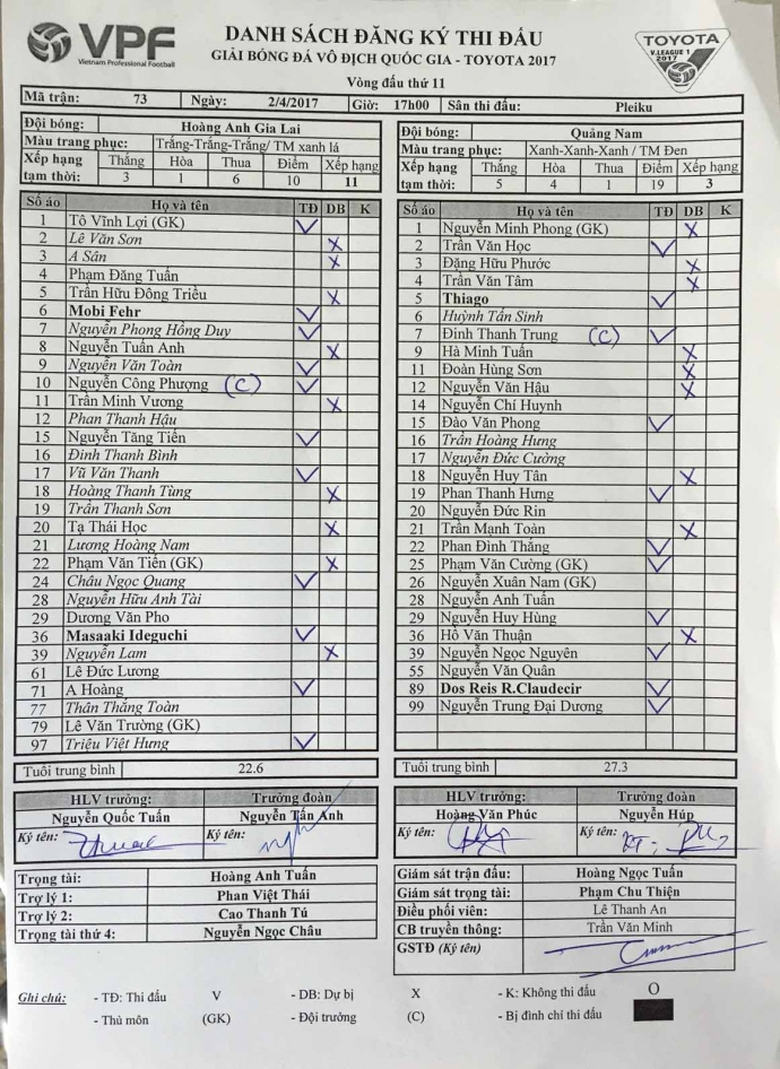 VPF
Vietnam Professional Football
DANH SÁCH ĐĂNG KÝ THI ĐẤU
GIẢI BÓNG ĐÁ VÔ ĐỊCH QUỐC GIA - TOYOTA 2017
TOYOTA
V.LEAGUE 1
2017
Vòng đấu thứ 11
Mã trận: 73 Ngày: 2/4/2017 Giờ: 17h00 Sân thi đấu: Pleiku
Đội bóng: Hoàng Anh Gia Lai
Màu trang phục: Trắng-Trắng-Trắng/ TM xanh lá
Xếp hạng Thắng Hòa Thua Điểm Xếp hạng
tạm thời: 3 1 6 10 11
Số áo Họ và tên TĐ DB K
1 Tô Vĩnh Lợi (GK) V
2 Lê Văn Sơn X
3 A Sân X
4 Phạm Đăng Tuấn
5 Trần Hữu Đông Triều X
6 Mobi Fehr V
7 Nguyễn Phong Hồng Duy V
8 Nguyễn Tuấn Anh X
9 Nguyễn Văn Toàn V
10 Nguyễn Công Phượng (C) V
11 Trần Minh Vương X
12 Phan Thanh Hậu
15 Nguyễn Tăng Tiến V
16 Đinh Thanh Bình
17 Vũ Văn Thanh V
18 Hoàng Thanh Tùng X
19 Trần Thanh Sơn
20 Tạ Thái Học X
21 Lương Hoàng Nam
22 Phạm Văn Tiến (GK) X
24 Châu Ngọc Quang V
28 Nguyễn Hữu Anh Tài
29 Dương Văn Pho
36 Masaaki Ideguchi V
39 Nguyễn Lam X
61 Lê Đức Lương
71 A Hoàng V
77 Thân Thắng Toàn
79 Lê Văn Trường (GK)
97 Triệu Việt Hưng V
Tuổi trung bình 22.6
HLV trưởng: Trưởng đoàn
Nguyễn Quốc Tuấn Nguyễn Tấn Anh
Ký tên: Ký tên:
Trọng tài: Hoàng Anh Tuấn
Trợ lý 1: Phan Việt Thái
Trợ lý 2: Cao Thanh Tú
Trọng tài thứ 4: Nguyễn Ngọc Châu
Đội bóng: Quảng Nam
Màu trang phục: Xanh-Xanh-Xanh / TM Đen
Xếp hạng Thắng Hòa Thua Điểm Xếp hạng
tạm thời: 5 4 1 19 3
Số áo Họ và tên TĐ DB K
1 Nguyễn Minh Phong (GK) X
2 Trần Văn Học V
3 Đặng Hữu Phước X
4 Trần Văn Tâm X
5 Thiago V
6 Huỳnh Tấn Sinh
7 Đinh Thanh Trung (C) V
9 Hà Minh Tuấn X
11 Đoàn Hùng Sơn X
12 Nguyễn Văn Hậu X
14 Nguyễn Chí Huynh
15 Đào Văn Phong V
16 Trần Hoàng Hưng
17 Nguyễn Đức Cường
18 Nguyễn Huy Tân X
19 Phan Thanh Hưng V
20 Nguyễn Đức Rin
21 Trần Mạnh Toàn X
22 Phan Đình Thắng V
25 Phạm Văn Cường (GK) V
26 Nguyễn Xuân Nam (GK)
28 Nguyễn Anh Tuấn
29 Nguyễn Huy Hùng V
36 Hồ Văn Thuận X
39 Nguyễn Ngọc Nguyên V
55 Nguyễn Văn Quân
89 Dos Reis R.Claudecir V
99 Nguyễn Trung Đại Dương V
Tuổi trung bình 27.3
HLV trưởng: Trưởng đoàn
Hoàng Văn Phúc Nguyễn Húp
Ký tên: Ký tên:
Giám sát trận đấu: Hoàng Ngọc Tuấn
Giám sát trọng tài: Phạm Chu Thiện
Điều phối viên: Lê Thanh An
CB truyền thông: Trần Văn Minh
GSTĐ (Ký tên)
Ghi chú: - TĐ: Thi đấu V - DB: Dự bị X - K: Không thi đấu O
- Thủ môn (GK) - Đội trưởng (C) - Bị đình chỉ thi đấu